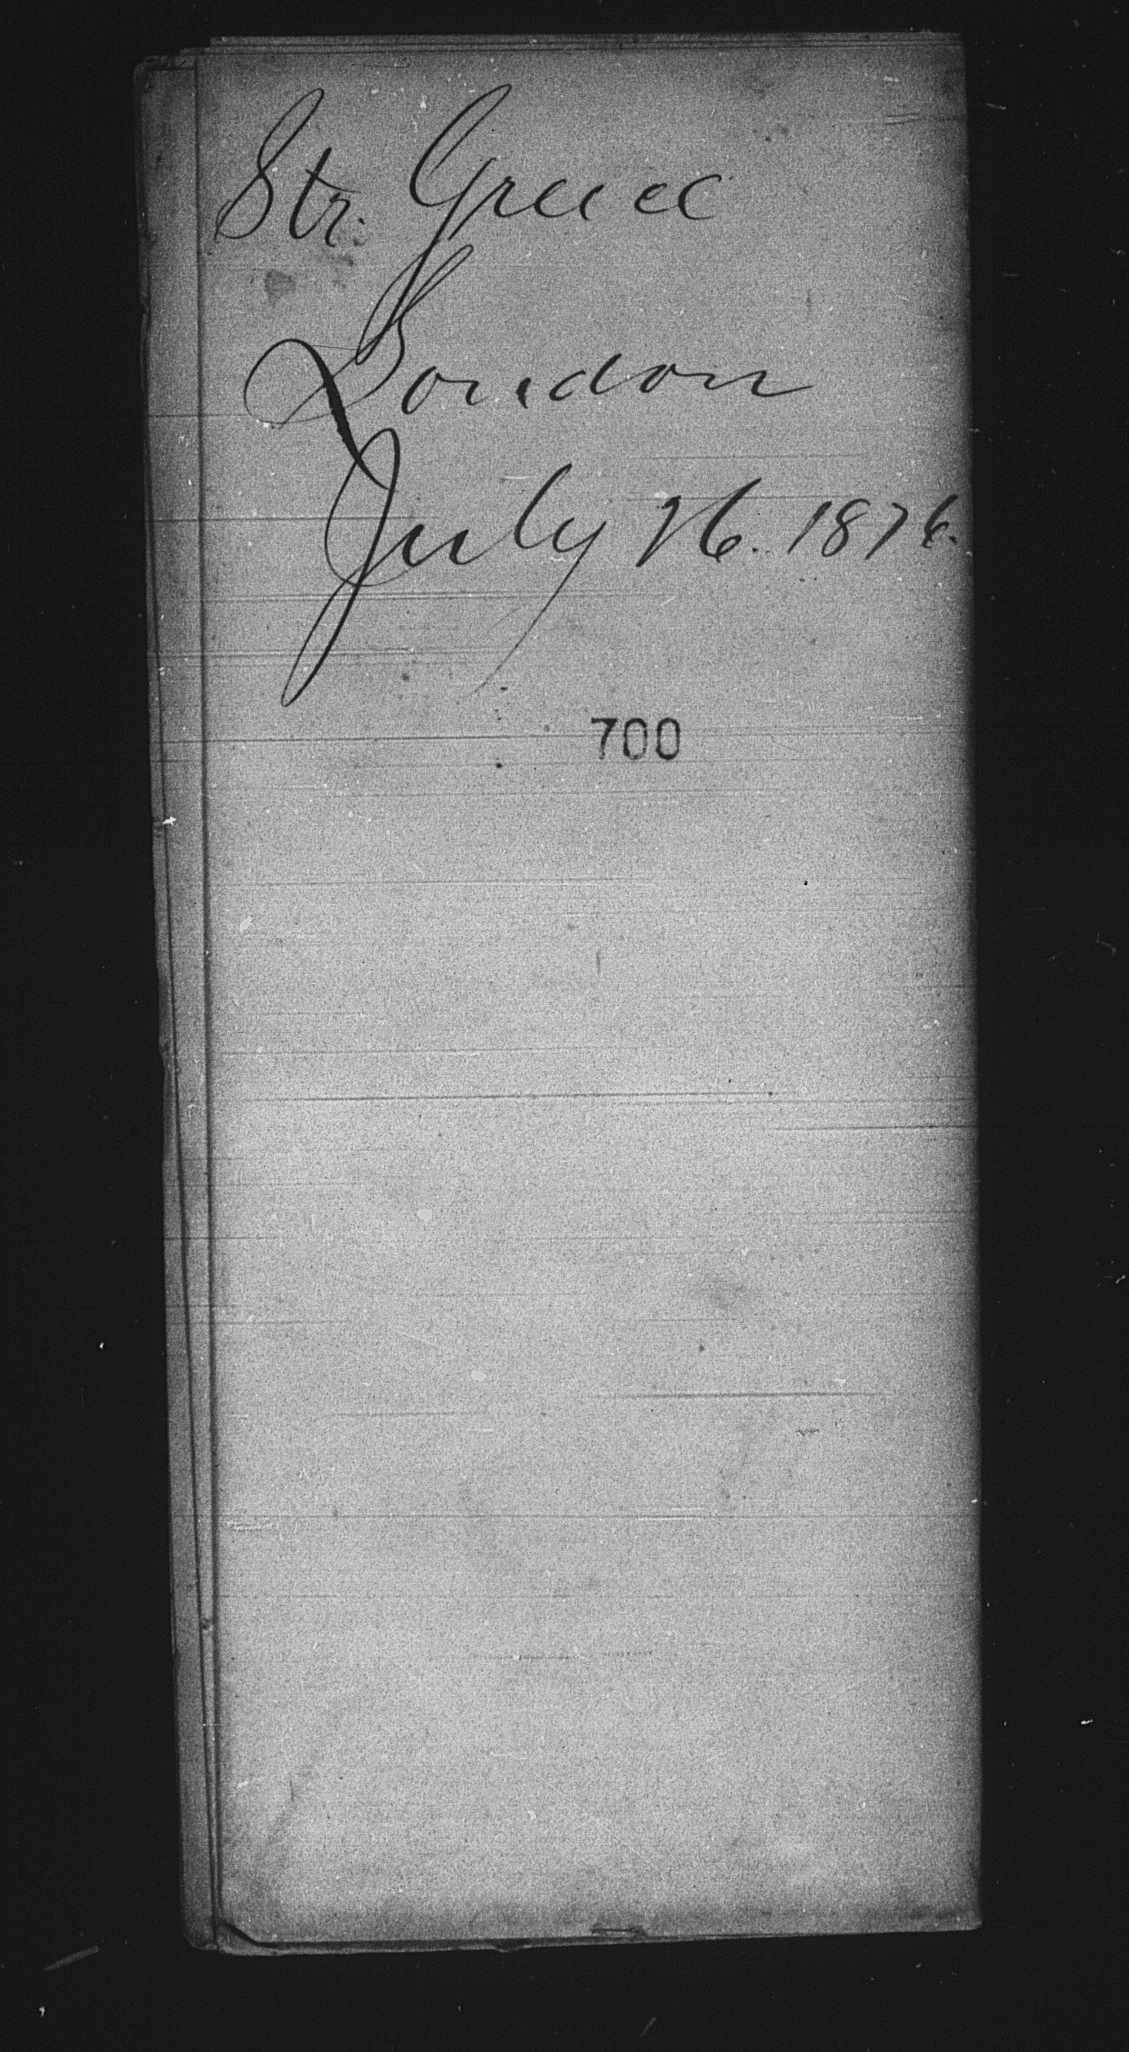 Str. Greece
London
July 26. 1876.
700